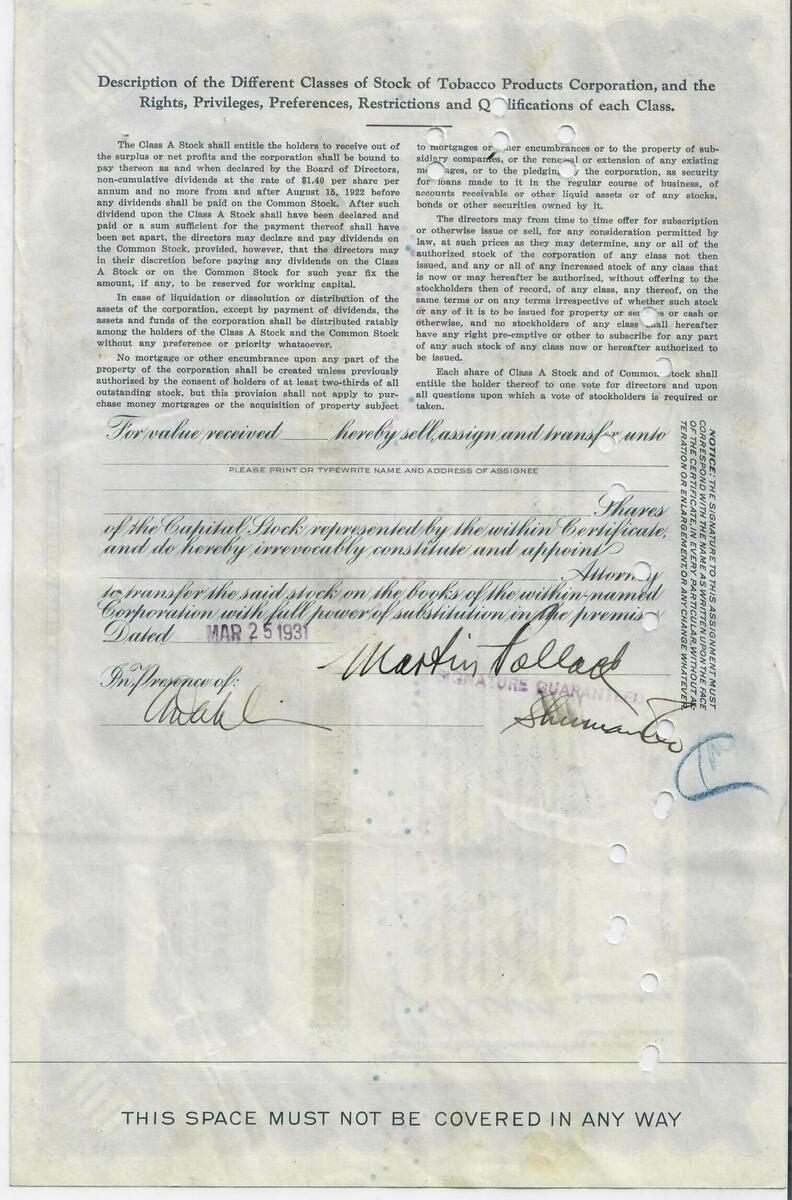 Description of the Different Classes of Stock of Tobacco Products Corporation, and the
Rights, Privileges, Preferences, Restrictions and Q lifications of each Class.
The Class A Stock shall entitle the holders to receive out of
the surplus or net profits and the corporation shall be bound to
pay thereon as and when declared by the Board of Directors,
non-cumulative dividends at the rate of $1.40 per share per
annum and no more from and after August 15, 1922 before
any dividends shall be paid on the Common Stock. After such
dividend upon the Class A Stock shall have been declared and
paid or a sum sufficient for the payment thereof shall have
been set apart, the directors may declare and pay dividends on
the Common Stock, provided, however, that the directors may
in their discretion before paying any dividends on the Class
A Stock or on the Common Stock for such year fix the
amount, if any, to be reserved for working capital.
In case of liquidation or dissolution or distribution of the
assets of the corporation, except by payment of dividends, the
assets and funds of the corporation shall be distributed ratably
among the holders of the Class A Stock and the Common Stock
without any preference or priority whatsoever.
No mortgage or other encumbrance upon any part of the
property of the corporation shall be created unless previously
authorized by the consent of holders of at least two-thirds of all
outstanding stock, but this provision shall not apply to pur-
chase money mortgages or the acquisition of property subject
to mortgages or her encumbrances or to the property of sub-
sidiary companies, or the renewal or extension of any existing
m ages, or to the pledging y the corporation, as security
for loans made to it in the regular course of business, of
accounts receivable or other liquid assets or of any stocks,
bonds or other securities owned by it.
The directors may from time to time offer for subscription
or otherwise issue or sell, for any consideration permitted by
law, at such prices as they may determine, any or all of the
authorized stock of the corporation of any class not then
issued, and any or all of any increased stock of any class that
is now or may hereafter be authorized, without offering to the
stockholders then of record, of any class, any thereof, on the
same terms or on any terms irrespective of whether such stock
or any of it is to be issued for property or se s or cash or
otherwise, and no stockholders of any class shall hereafter
have any right pre-emptive or other to subscribe for any part
of any such stock of any class now or hereafter authorized to
be issued.
Each share of Class A Stock and of Common Stock shall
entitle the holder thereof to one vote for directors and upon
all questions upon which a vote of stockholders is required or
taken.
For value received hereby sell, assign and transfer unto
PLEASE PRINT OR TYPEWRITE NAME AND ADDRESS OF ASSIGNEE
Shares
of the Capital Stock represented by the within Certificate,
and do hereby irrevocably constitute and appoint
Attorney
to transfer the said stock on the books of the within-named
Corporation with full power of substitution in the premis
Dated MAR 25 1931
Martin Pollack
In Presence of:
SIGNATURE GUARANTEED
NOTICE: THE SIGNATURE TO THIS ASSIGNMENT MUST
CORRESPOND WITH THE NAME AS WRITTEN UPON THE FACE
OF THE CERTIFICATE, IN EVERY PARTICULAR, WITHOUT AL-
TERATION OR ENLARGEMENT, OR ANY CHANGE WHATEVER.
THIS SPACE MUST NOT BE COVERED IN ANY WAY